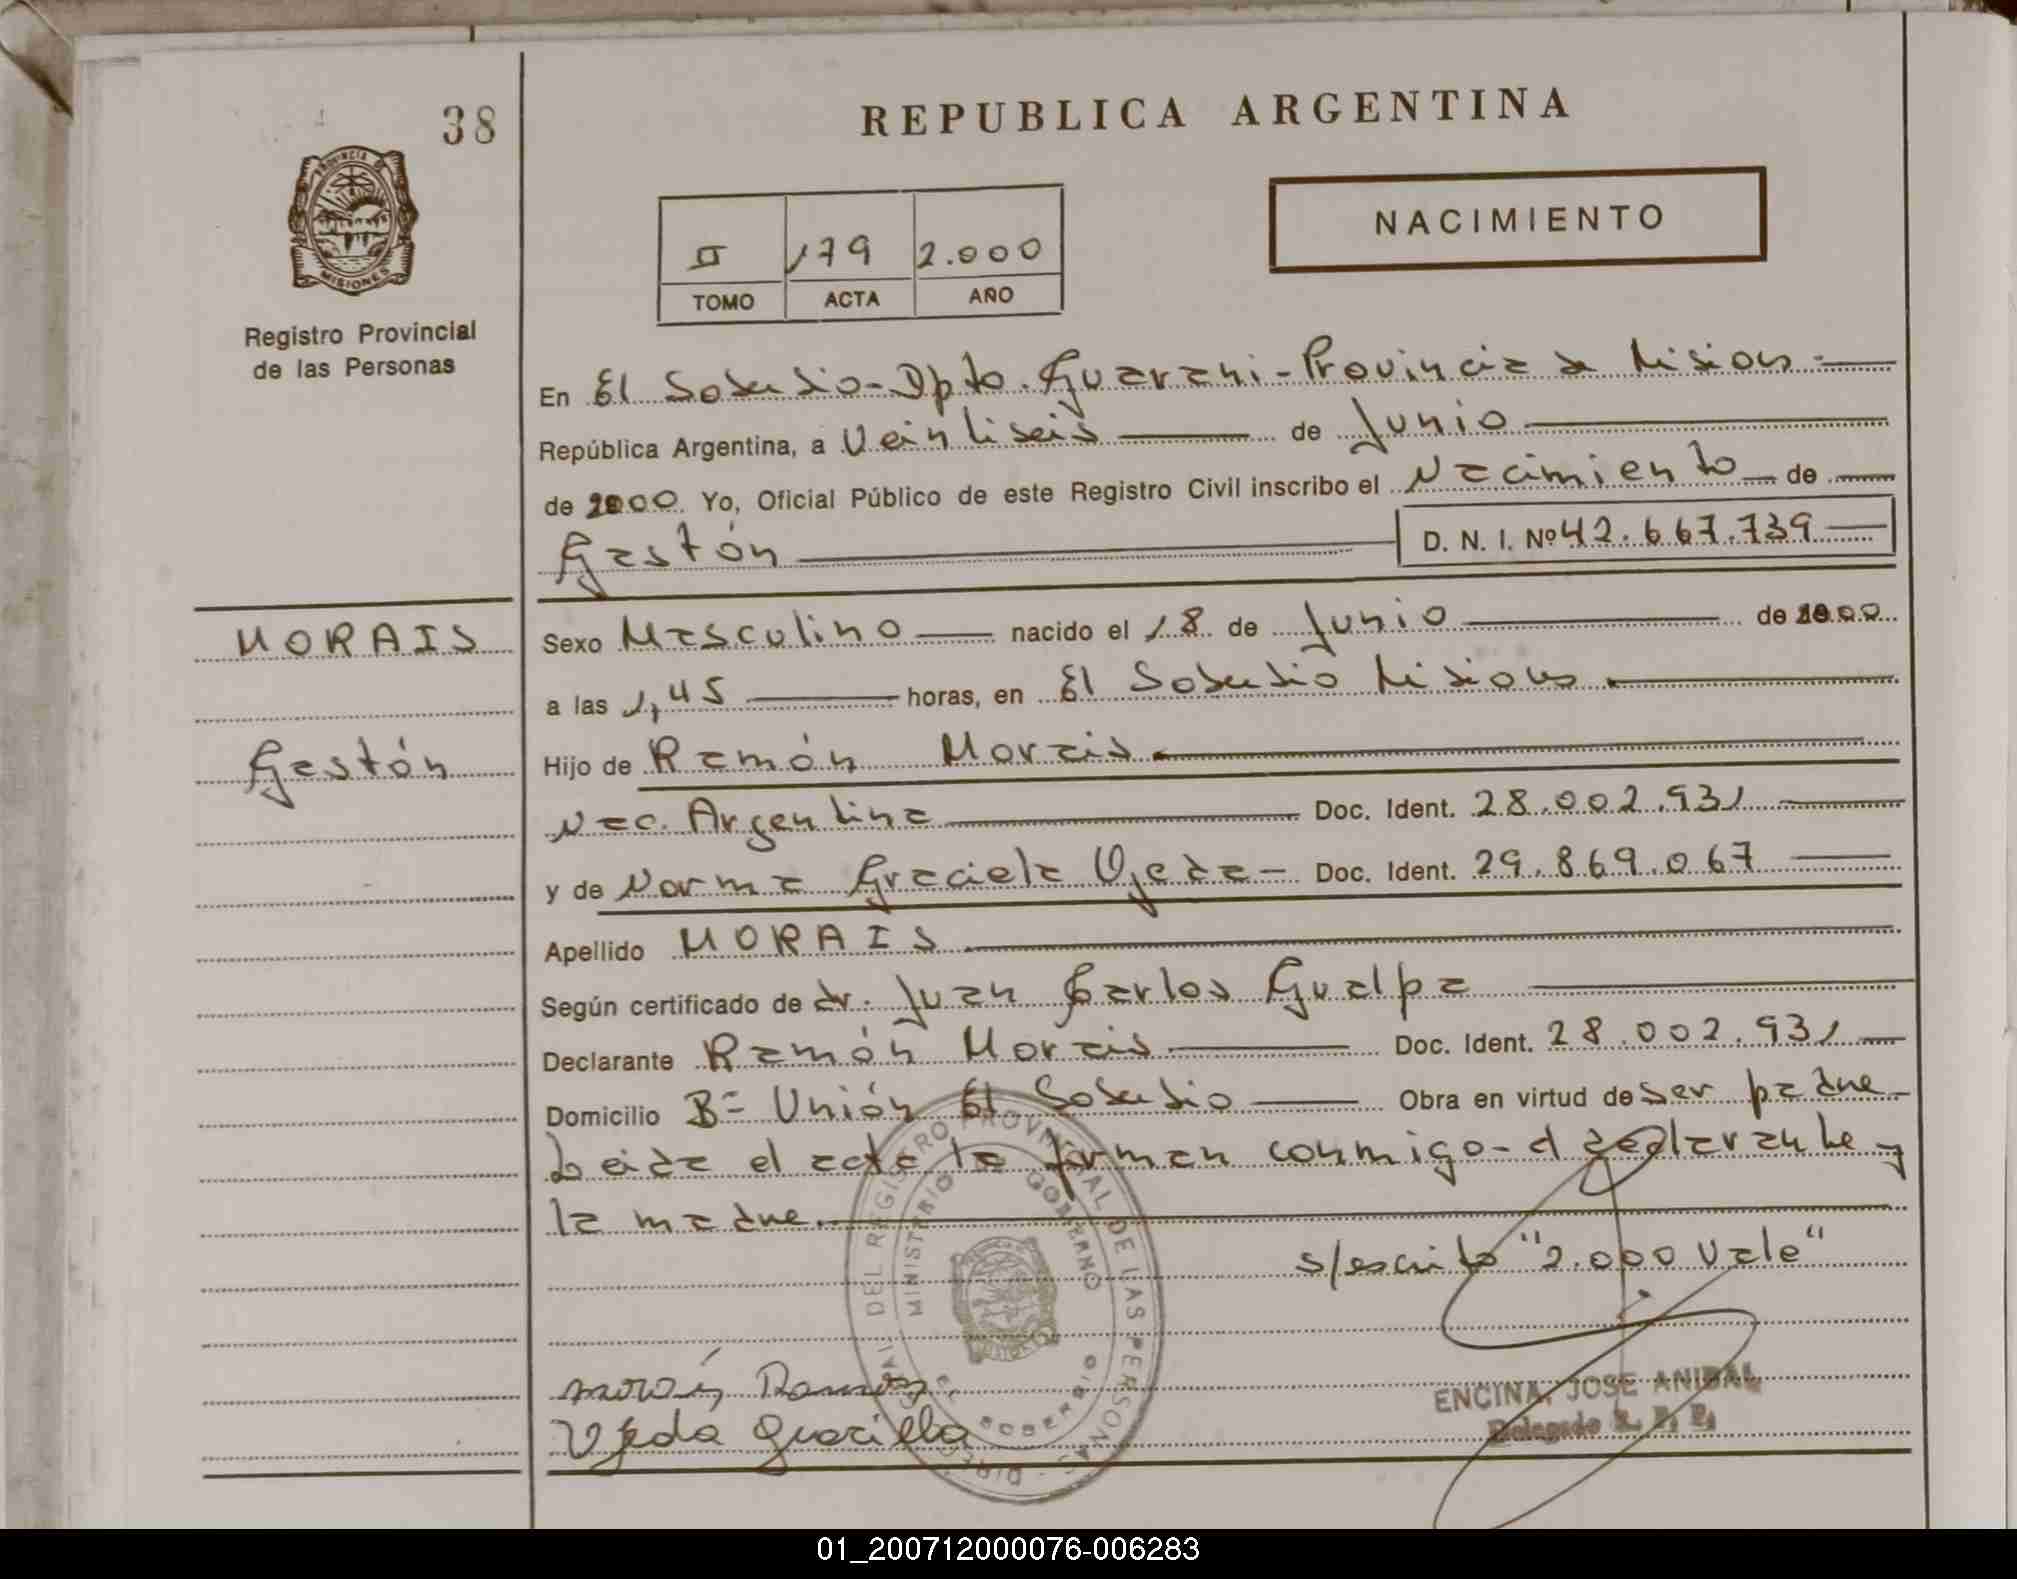 38
REPUBLICA ARGENTINA
PROVINCIA DE
MISIONES
NACIMIENTO
II 179 2.000
TOMO ACTA AÑO
Registro Provincial
de las Personas
En El Soberbio - Dpto. Guarani - Provincia de Misiones
República Argentina, a Veintiseis de Junio
de 2000 Yo, Oficial Público de este Registro Civil inscribo el Nacimiento de
Gastón D. N. I. Nº 42.667.739
MORAIS
Gastón
Sexo Masculino nacido el 18 de Junio de 2000
a las 1,45 horas, en El Soberbio Misiones.
Hijo de Ramón Morais.
Nac. Argentina Doc. Ident. 28.002.931
y de Norma Graciela Ojeda - Doc. Ident. 29.869.067
Apellido MORAIS
Según certificado de dr. Juan Carlos Gualpa
Declarante Ramón Morais Doc. Ident. 28.002.931
Domicilio Bº Unión El Soberbio Obra en virtud de ser padre
Leida el acta la firman conmigo - el declarante y
la madre.
s/escrito "2.000 Vale"
DIRECC PROVINCIAL DEL REGISTRO PROVINCIAL DE LAS PERSONAS
MINISTERIO GOBIERNO
EL SOBERBIO
Ramon
Ojeda
ENCINA, JOSE ANIBAL
Delegado R. P. P.
01_200712000076-006283